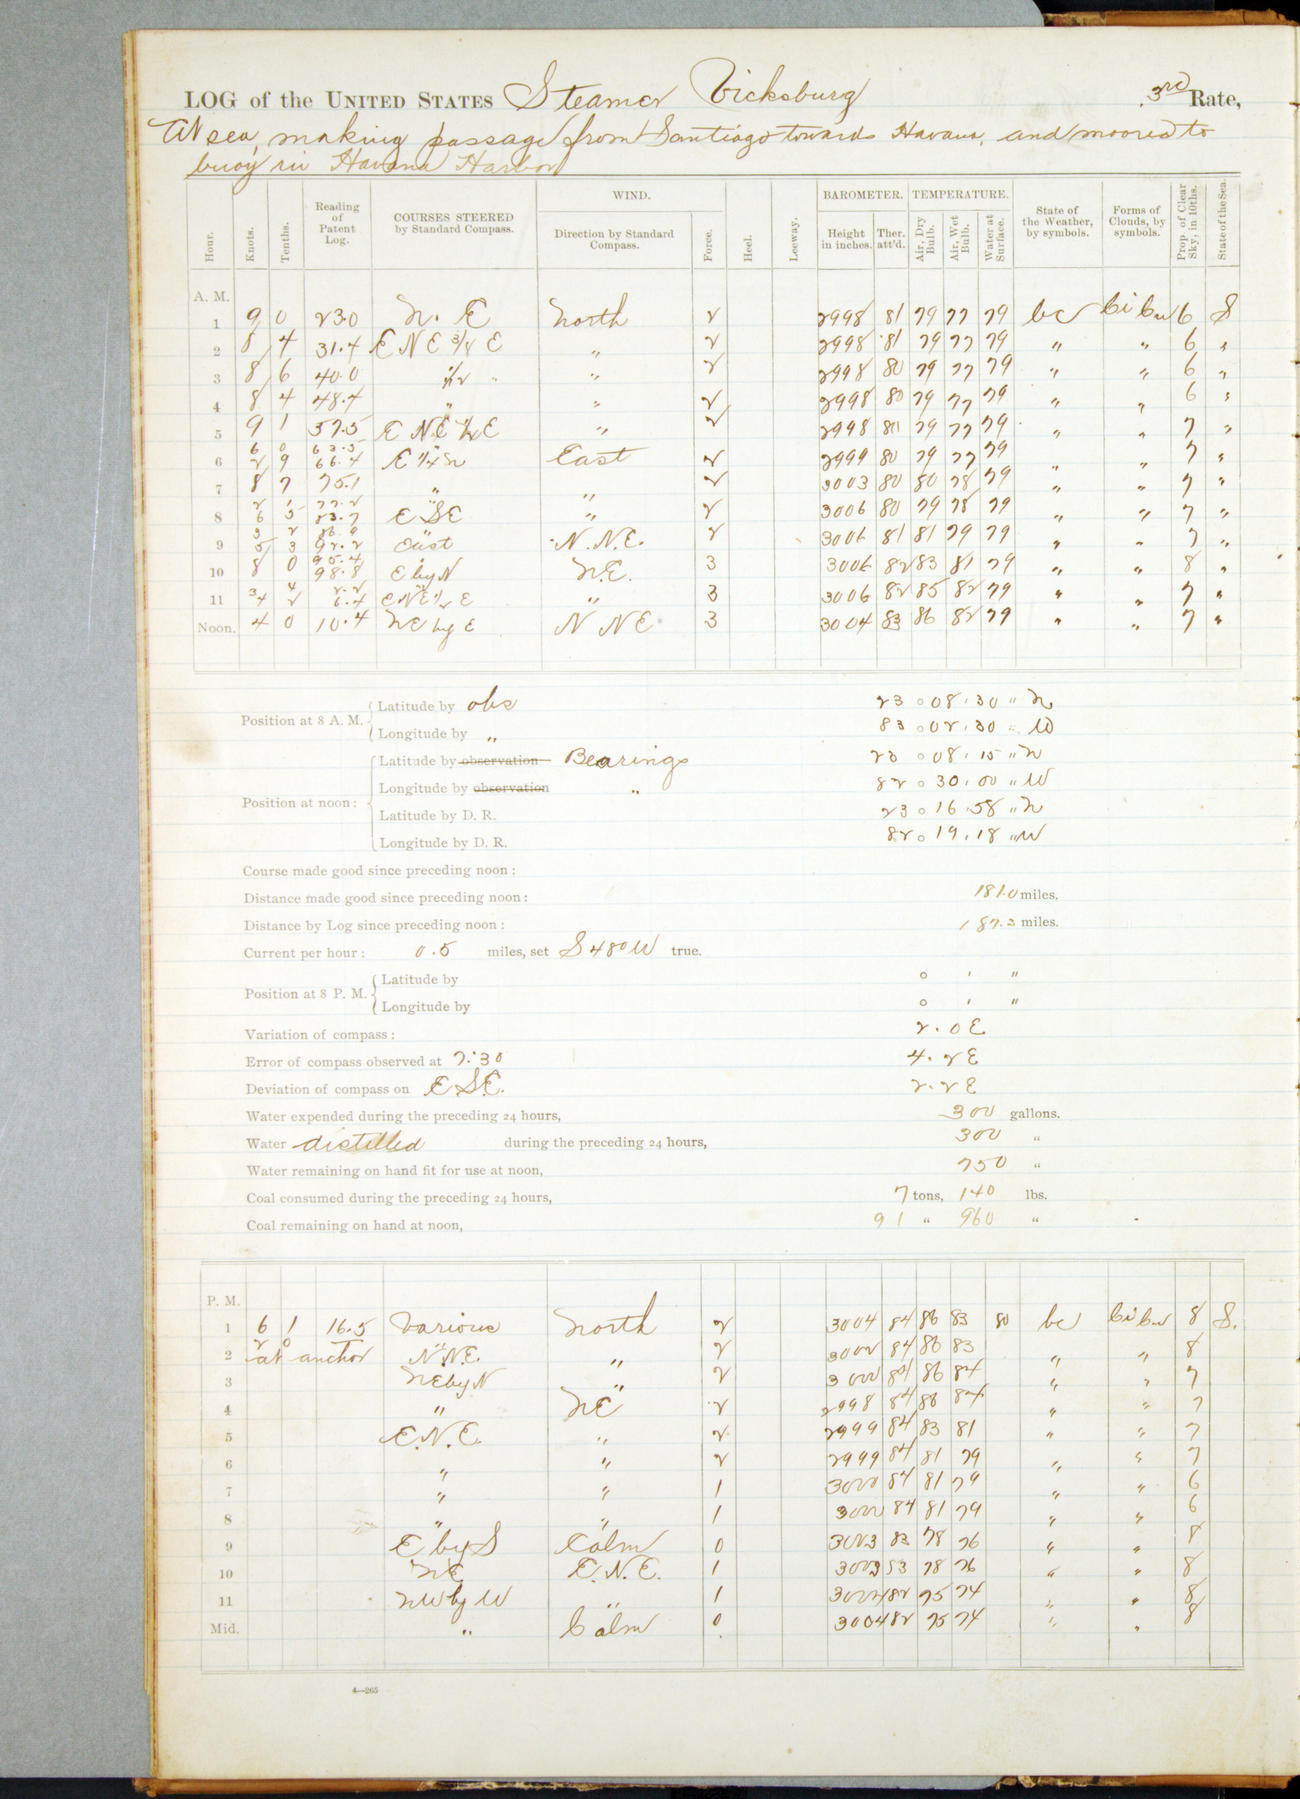 LOG of the UNITED STATES Steamer Vicksburg 3rd Rate,
At sea, making passage from Santiago towards Havana, and moored to
buoy in Havana Harbor
Hour. Knots. Tenths. Reading of Patent Log. COURSES STEERED by Standard Compass. WIND. Direction by Standard Compass. Force. Heel. Leeway. BAROMETER. Height in inches. Ther. att'd. TEMPERATURE. Air, Dry Bulb. Air, Wet Bulb. Water at Surface. State of the Weather, by symbols. Forms of Clouds, by symbols. Prop. of Clear Sky, in 10ths. State of the Sea.
A. M.
1 9 0 23.0 N. E North 2 2998 81 79 77 79 bc Ci Cu 6 S
2 8 4 31.4 ENE 3/8 E " 2 2998 81 79 77 79 " " 6 "
3 8 6 40.0 " 1/2 " " 2 2998 80 79 77 79 " " 6 "
4 8 4 48.4 " " 2 2998 80 79 77 79 " " 6 "
5 9 1 57.5 ENE 1/2 E " 2 2998 80 79 77 79 " " 7 "
6 0 63.5
6 2 9 66.4 E 1/4 N East 2 2999 80 79 77 79 " " 7 "
7 8 7 75.1 " " 2 3003 80 80 78 79 " " 7 "
2 1 77.2
8 6 5 83.7 ESE " 2 3006 80 79 78 79 " " 7 "
3 2 86.9
9 5 3 92.2 East N.N.E. 2 3006 81 81 79 79 " " 7 "
95.4
10 8 0 98.8 E by N N.E. 3 3006 82 83 81 79 " " 8 "
4 2.2
11 34 2 6.4 ENE 1/2 E " 3 3006 82 85 82 79 " " 7 "
Noon. 4 0 10.4 NE by E NNE 3 3004 83 86 82 79 " " 7 "
Position at 8 A. M. Latitude by obs 23 ° 08 ' 30 " N
Longitude by " 83 ° 02 ' 30 " W
Position at noon: Latitude by observation Bearings 23 ° 08 ' 15 " N
Longitude by observation " 82 ° 30 ' 00 " W
Latitude by D. R. 23 ° 16 ' 58 " N
Longitude by D. R. 82 ° 19 ' 18 " W
Course made good since preceding noon:
Distance made good since preceding noon: 181.0 miles.
Distance by Log since preceding noon: 187.3 miles.
Current per hour: 0.5 miles, set S 48° W true.
Position at 8 P. M. Latitude by ° ' "
Longitude by ° ' "
Variation of compass: 2.0 E
Error of compass observed at 7:30 4.2 E
Deviation of compass on E.S.E. 2.2 E
Water expended during the preceding 24 hours, 300 gallons.
Water distilled during the preceding 24 hours, 300 "
Water remaining on hand fit for use at noon, 750 "
Coal consumed during the preceding 24 hours, 7 tons, 140 lbs.
Coal remaining on hand at noon, 91 " 960 "
P. M.
1 6 1 16.5 Various North 2 3004 84 86 83 80 bc Ci Cu 8 S.
2 0
2 at anchor N.N.E. " 2 3002 84 86 83 " " 8
3 NE by N " 2 3000 84 86 84 " " 7
4 " NE 2 2998 84 86 84 " " 7
5 E.N.E. " 2 2999 84 83 81 " " 7
6 " " 2 2999 84 81 79 " " 7
7 " " 1 3000 84 81 79 " " 6
8 " " 1 3000 84 81 79 " " 6
9 E by S Calm 0 3003 83 78 76 " " 8
10 NE E.N.E. 1 3003 83 78 76 " " 8
11 NW by W " 1 3004 82 75 74 " " 8
Mid. " Calm 0 3004 82 75 74 " " 8
4—265